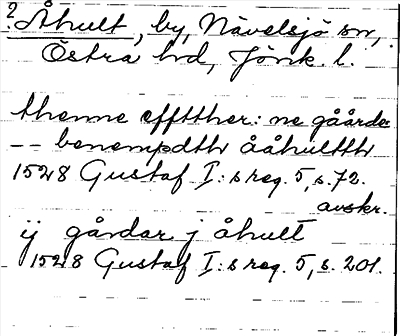 ? Åhult, by, Nävelsjö sn,
Östra hd, Jönk. l.
thenne efftther: ne gåårde
-- benempdth ååhultth
1528 Gustaf I:s reg. 5, s. 72.
avskr.
ij gårdar j åhult
1528 Gustaf I:s reg. 5, s. 201.